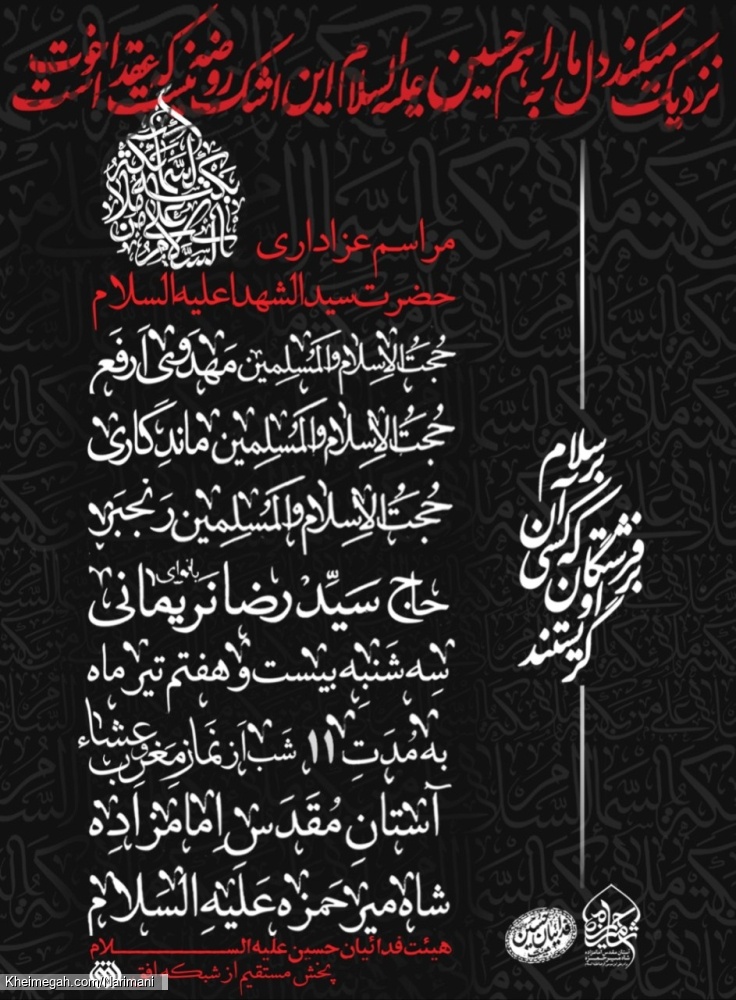 نزدیک میکند دل ما را به هم حسین علیه السلام این اشک روضه نیست که عقد اخوت است
السلام علی من بکته ملائکة السماء
مراسم عزاداری
حضرت سیدالشهدا علیه السلام
حُجتُ الاِسلام وَالمُسلِمین مَهدَوی اَرفَع
حُجتُ الاِسلام وَالمُسلِمین ماندِگاری
حُجتُ الاِسلام وَالمُسلِمین رَنجبَر
بانوای
حاج سَیِّد رضا نَریمانی
سِه شَنبِه بیست و هفتم تیر ماه
به مُدَتِ ۱۱ شَب اَز نَمازِ مَغرِب و عِشاء
آستانِ مُقَدَسِ اِمامزاده
شاه میر حمزه عَلَیهِ السَلام
هیئت فدائیان حسین علیه الســـلام
پخش مستقیم از شبکه افق
بر سلام
فرشتگان
که کسی آن
او
گریستند
Kheimegah.com/Narimani